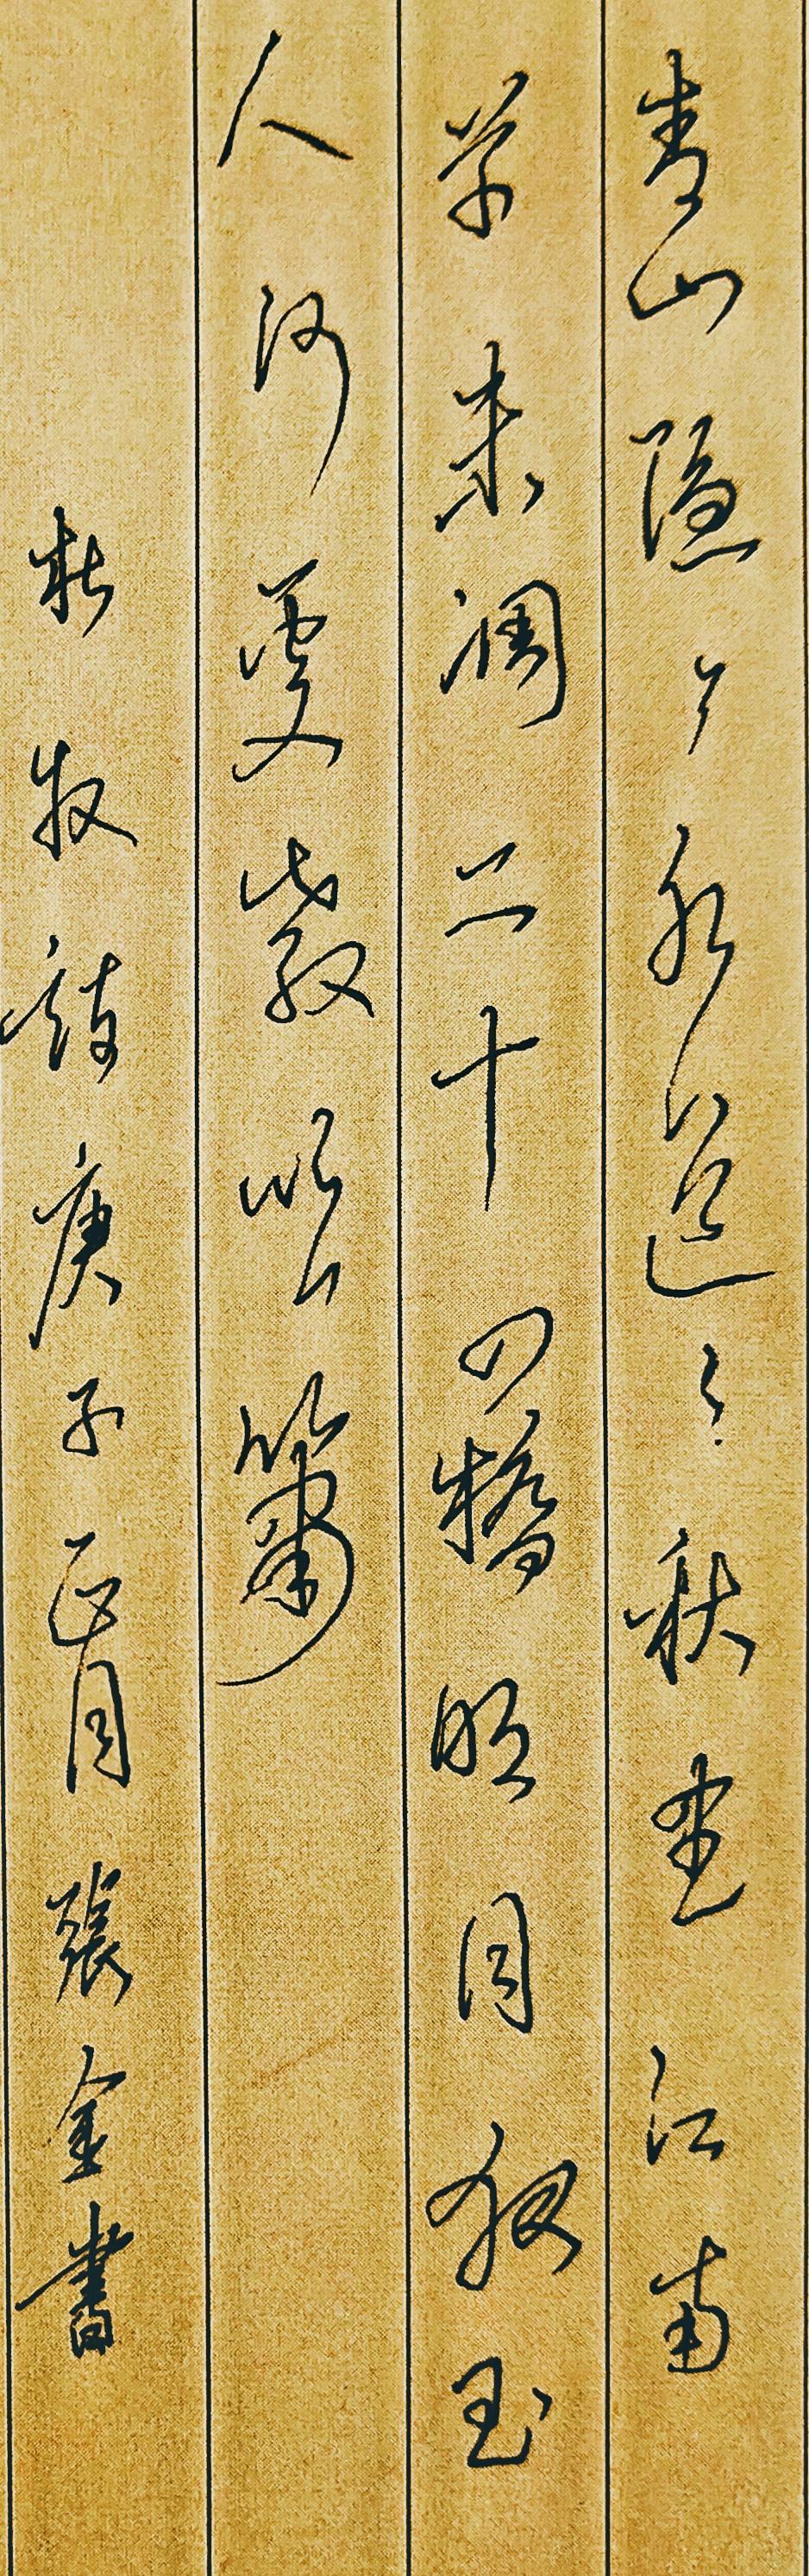 青山隱々水迢々秋盡江南
草未凋二十四橋明月夜玉
人何處教吹簫
杜牧詩庚子正月張金書